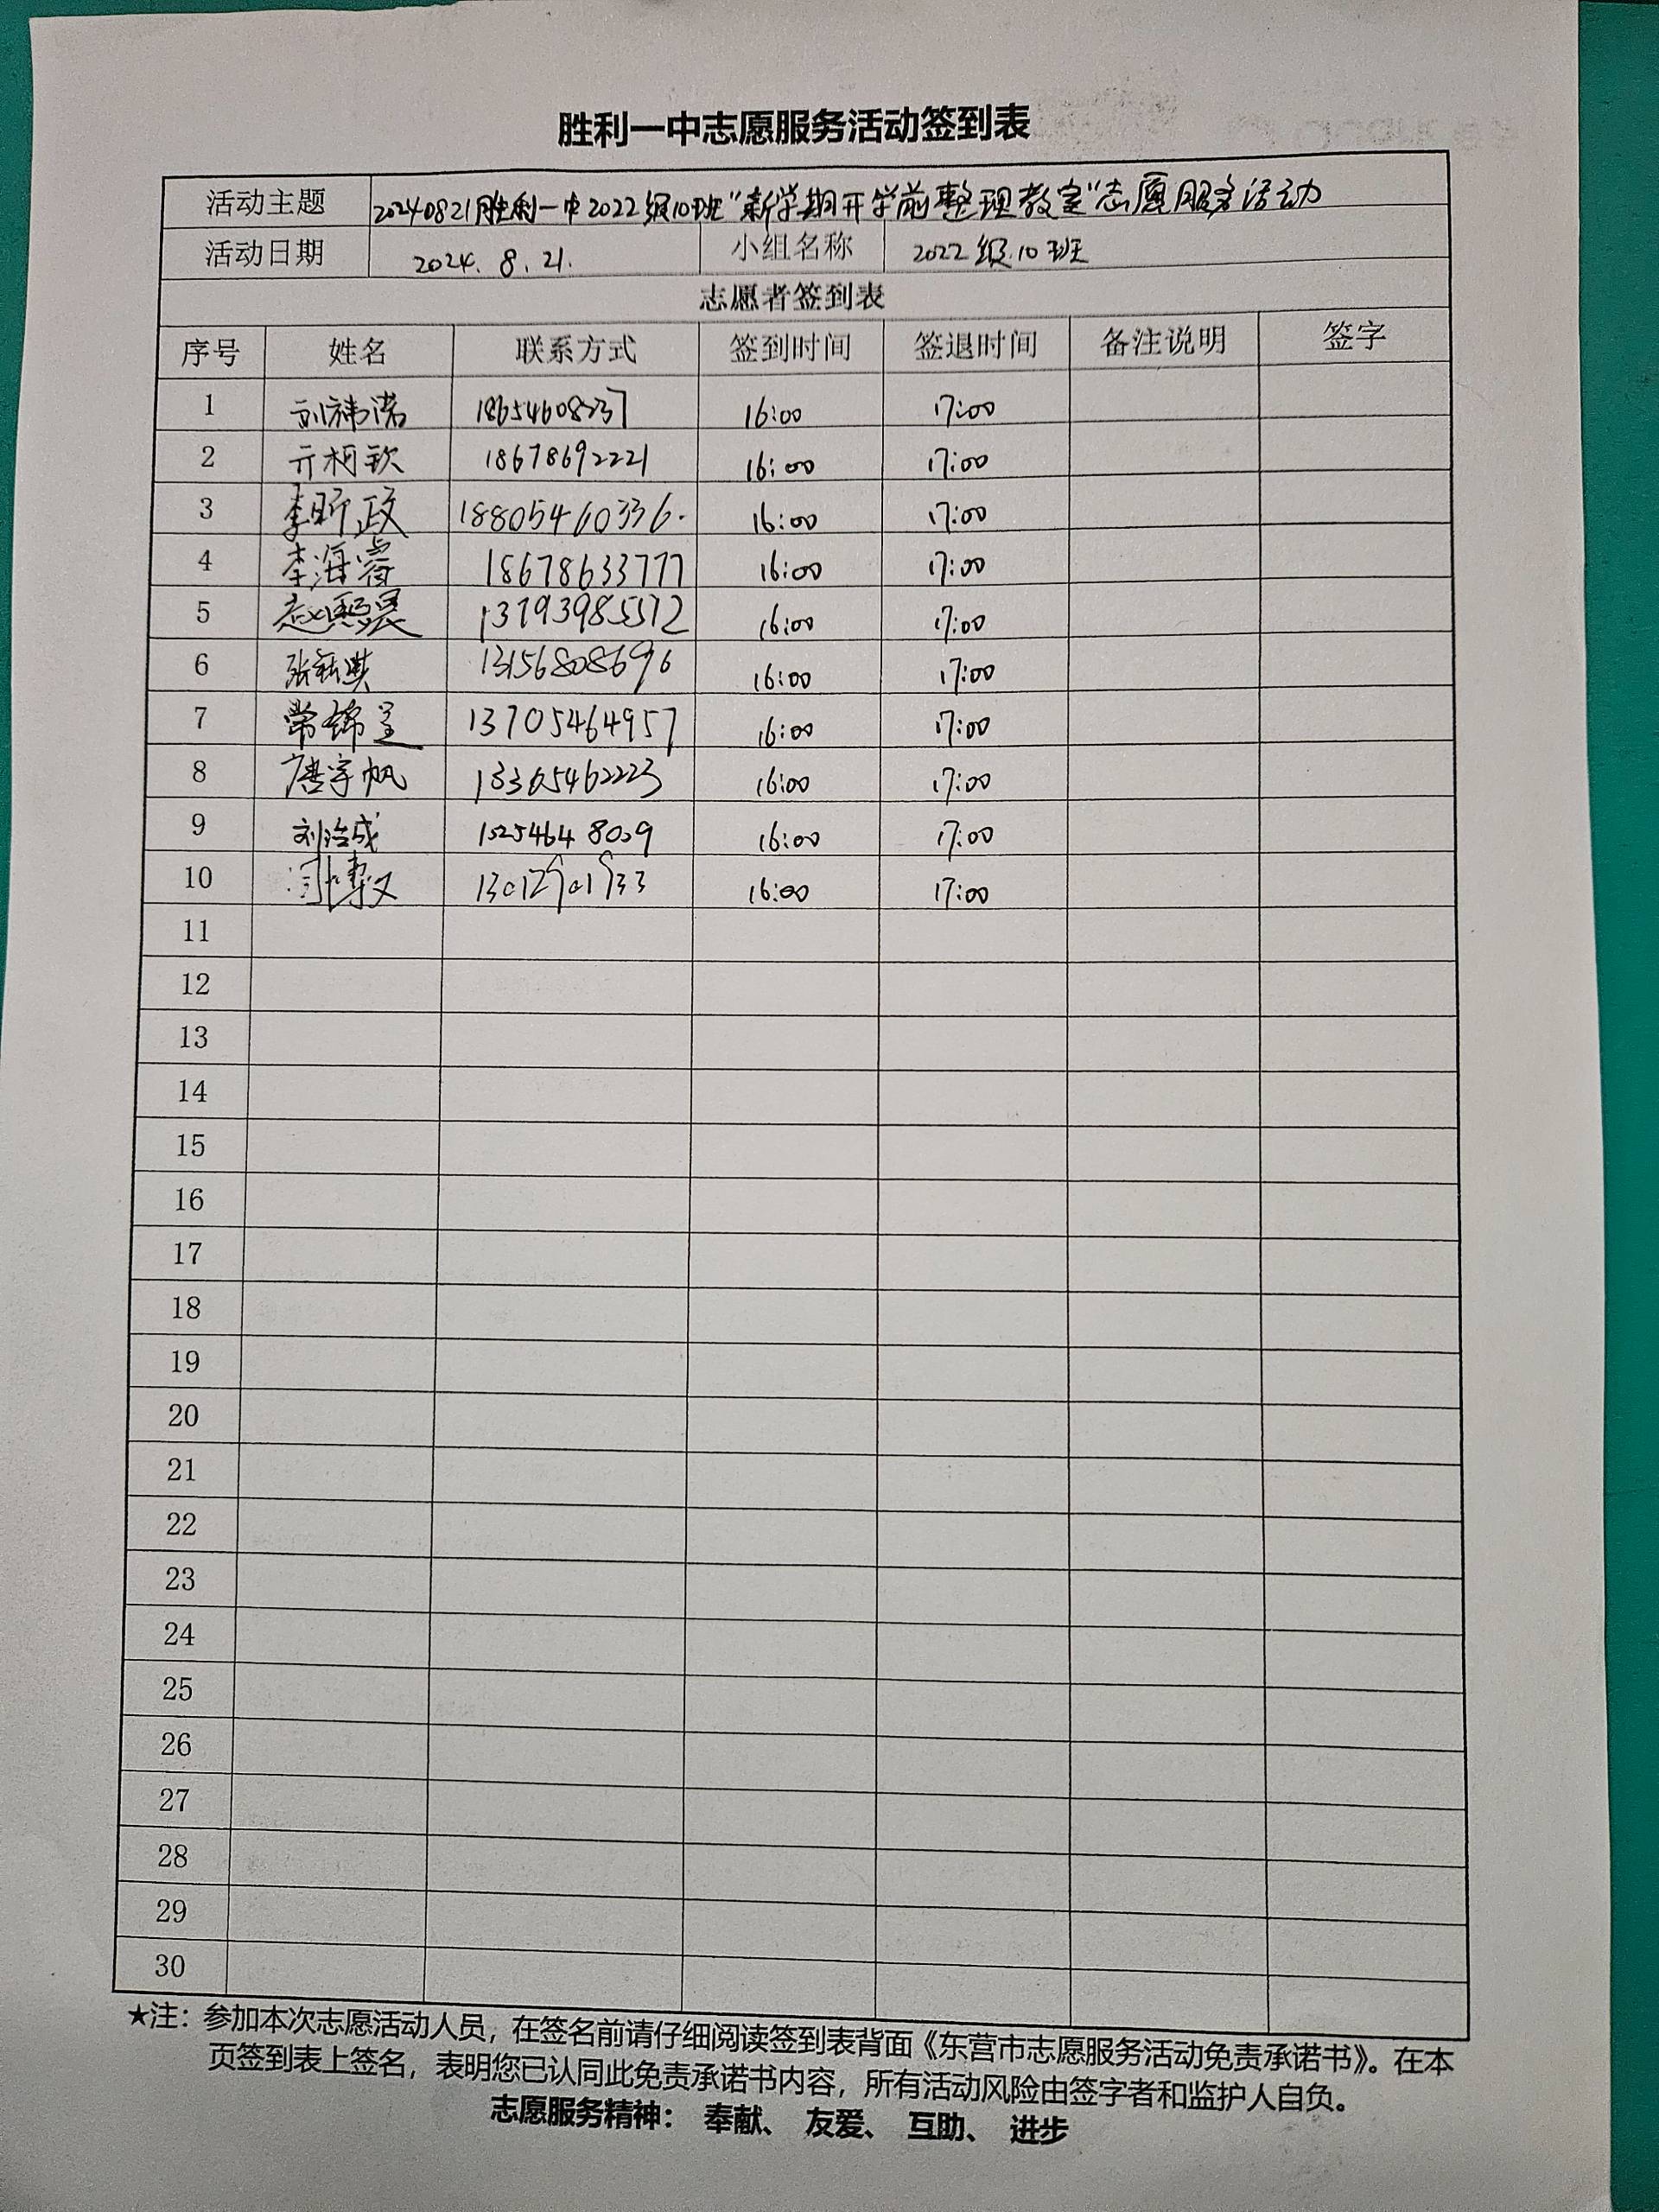 胜利一中志愿服务活动签到表
活动主题 20240821胜利一中2022级10班“新学期开学前整理教室”志愿服务活动
活动日期 2024.8.21. 小组名称 2022级10班
志愿者签到表
序号 姓名 联系方式 签到时间 签退时间 备注说明 签字
1 刘祎诺 18654608237 16:00 17:00
2 亓柯钦 18678692221 16:00 17:00
3 李昕政 18805460336. 16:00 17:00
4 李海睿 18678633777 16:00 17:00
5 赵熙晨 13793985572 16:00 17:00
6 张 13156808696 16:00 17:00
7 常锦 13705464957 16:00 17:00
8 唐宇帆 18365462223 16:00 17:00
9 刘治成 16:00 17:00
10 博文 16:00 17:00
11
12
13
14
15
16
17
18
19
20
21
22
23
24
25
26
27
28
29
30
★注：参加本次志愿活动人员，在签名前请仔细阅读签到表背面《东营市志愿服务活动免责承诺书》。在本
页签到表上签名，表明您已认同此免责承诺书内容，所有活动风险由签字者和监护人自负。
志愿服务精神： 奉献、 友爱、 互助、 进步